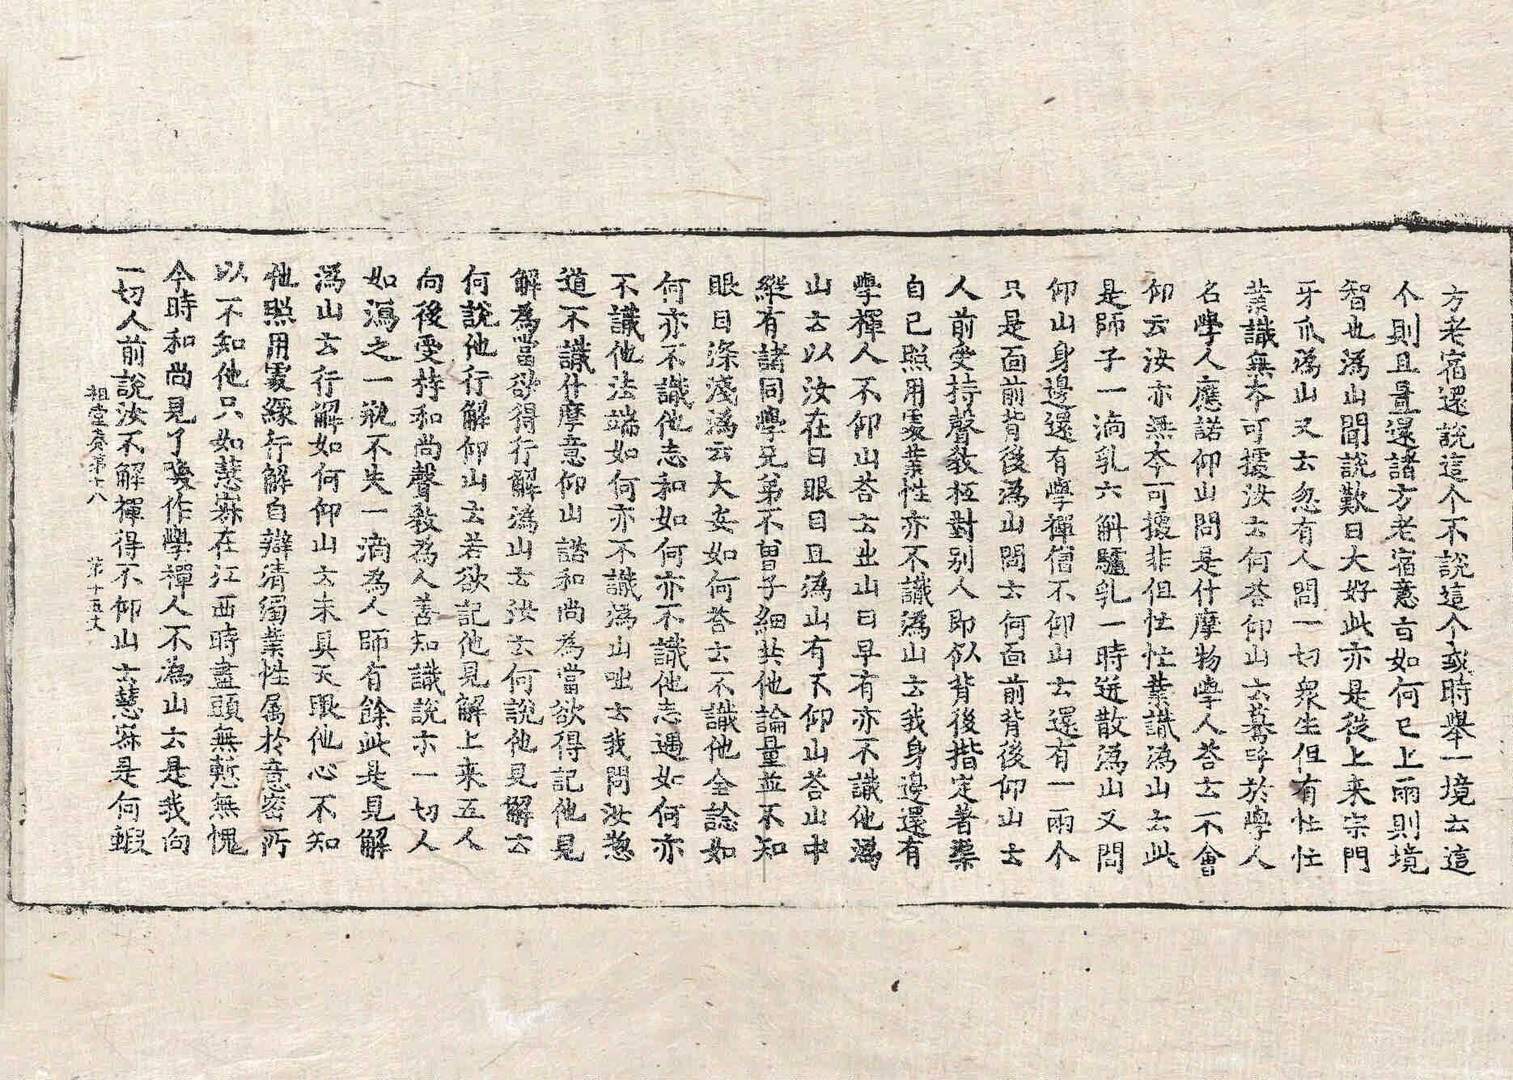 方老宿還說這个不說這个或時舉一境云這
个則且置還諸方老宿意旨如何已上兩則境
智也溈山聞說歎曰大好此亦是從上来宗門
牙爪溈山又云忽有人問一切衆生但有忙忙
業識無本可據汝云何荅仰山云驀呼於學人
名學人應諾仰山問是什摩物學人荅云不會
仰云汝亦無本可據非但忙忙業識溈山云此
是師子一滴乳六斛驢乳一時迸散溈山又問
仰山身邊還有學禪僧不仰山云還有一兩个
只是面前背後溈山問云何面前背後仰山云
人前受持聲教祗對别人即似背後指定著渠
自己照用處業性亦不識溈山云我身邊還有
學禪人不仰山荅云出山日早有亦不識他溈
山云以汝在日眼目且溈山有不仰山荅山中
縱有諸同學兄弟不曾子細共他論量並不知
眼目深淺溈云大安如何荅云不識他全諗如
何亦不識他志和如何亦不識他志遇如何亦
不識他法端如何亦不識溈山咄云我問汝惣
道不識什摩意仰山諮和尚為當欲得記他見
解為當欲得行解溈山云汝云何說他見解云
何說他行解仰山云若欲記他見解上来五人
向後受持和尚聲教為人善知識說示一切人
如瀉之一瓶不失一滴為人師有餘此是見解
溈山云行解如何仰山云未具天眼他心不知
他照用處緣行解自辯清濁業性属於意密所
以不知他只如慧寂在江西時盡頭無慙無愧
今時和尚見了喚作學禪人不溈山云是我向
一切人前說汝不解禪得不仰山云慧寂是何蝦
祖堂卷第十八 第十五丈